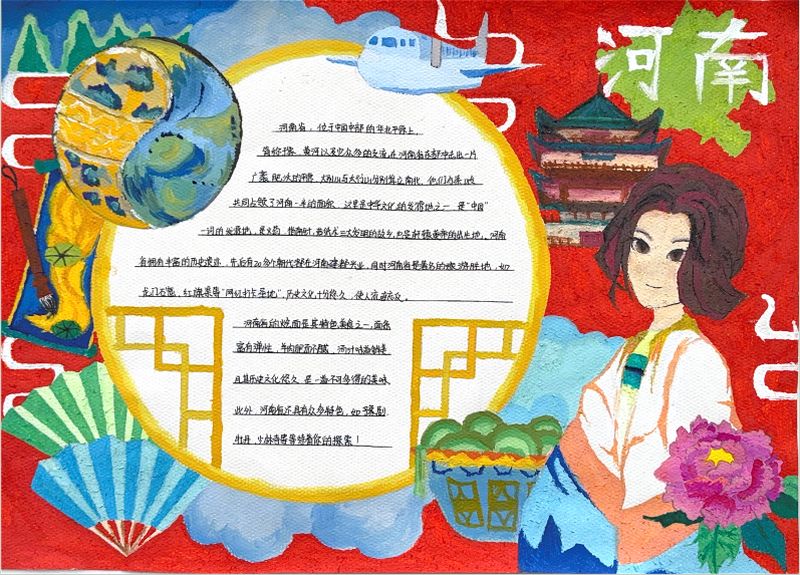 河南
河南省，位于中国中部的华北平原上。
黄河以及它众多的支流在河南省东部冲击出一片
广袤肥沃的平原，大别山与太行山分别耸立南北，他们
共同占领了河南一半的面积，这里是中华文化的发源地之一，是“中国”
一词的发源地，是火药、指南针、造纸术三大发明的故乡，河南
省拥有丰富的历史，先后有20多个朝代在河南建都，同时河南省是著名的旅游胜地，如
龙门石窟、红旗渠等“网红打卡圣地”，历史文化十分悠久，使人流连忘返。
河南省的烩面是其特色美食之一，面条
富有弹性，羊肉肥而不腻，汤汁味道鲜美
且其历史文化悠久，是一道不可多得的美味
此外，河南省还具有众多特色，如豫剧
牡丹、少林寺等等待着你的探索！